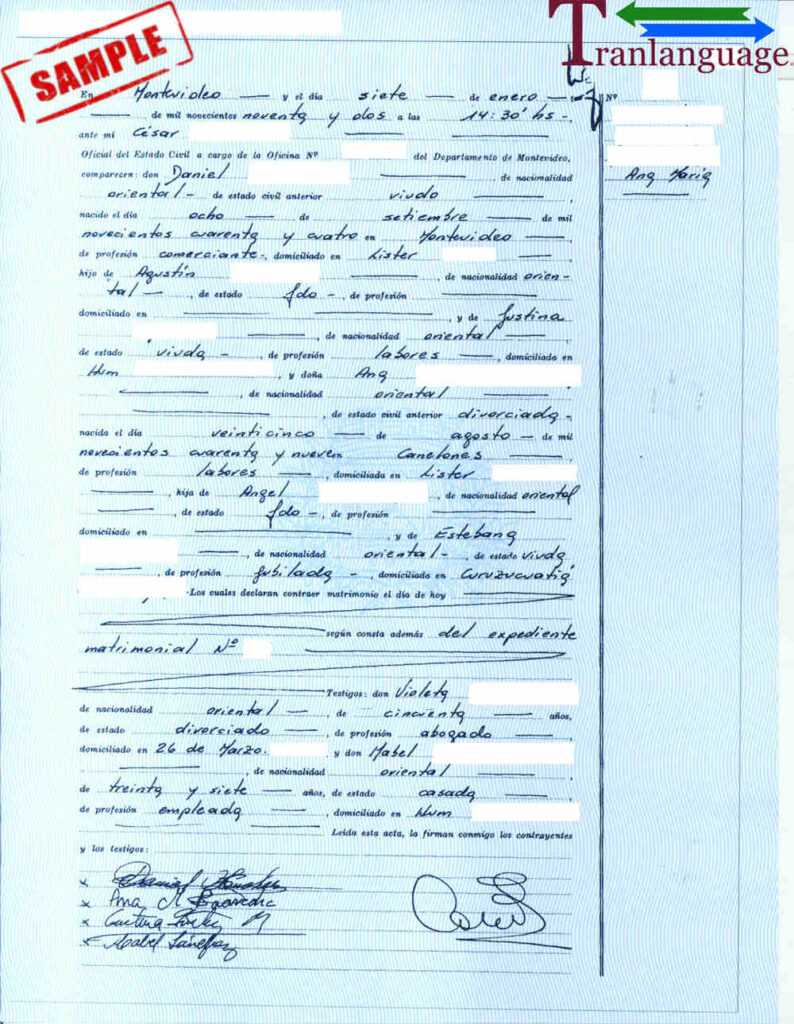 SAMPLE
Tranlanguage
En Montevideo y el día siete de enero
de mil novecientos noventa y dos a las 14:30' hs -,
Nº
ante mi César
Oficial del Estado Civil a cargo de la Oficina Nº del Departamento de Montevideo,
comparecen: don Daniel , de nacionalidad
Ana María
oriental - de estado civil anterior viudo
nacido el día ocho de setiembre de mil
novecientos cuarenta y cuatro en Montevideo ,
de profesión comerciante -, domiciliado en Lister
hijo de Agustín , de nacionalidad orien-
tal , de estado fdo -, de profesión
domiciliado en , y de Justina
, de nacionalidad oriental ,
de estado viuda - , de profesión labores , domiciliado en
Hum , y doña Ana
, de nacionalidad oriental
, de estado civil anterior divorciada -
nacida el día veinticinco de agosto - de mil
novecientos cuarenta y nueve en Canelones ,
de profesión labores , domiciliada en Lister
, hija de Angel , de nacionalidad oriental
, de estado fdo -, de profesión
domiciliado en , y de Estebana
, de nacionalidad oriental - , de estado viuda
, de profesión jubilada - , domiciliada en Curuzucuatiá
.-Los cuales declaran contraer matrimonio el día de hoy
según consta además del expediente
matrimonial Nº
Testigos: don Violeta
de nacionalidad oriental - , de cincuenta años,
de estado divorciado , de profesión abogado ,
domiciliado en 26 de Marzo. y don Mabel
, de nacionalidad oriental ,
de treinta y siete años, de estado casada ,
de profesión empleada , domiciliado en Hum
Leída esta acta, la firman conmigo los contrayentes
y los testigos:
x Daniel
x Ana M
x
x Mabel